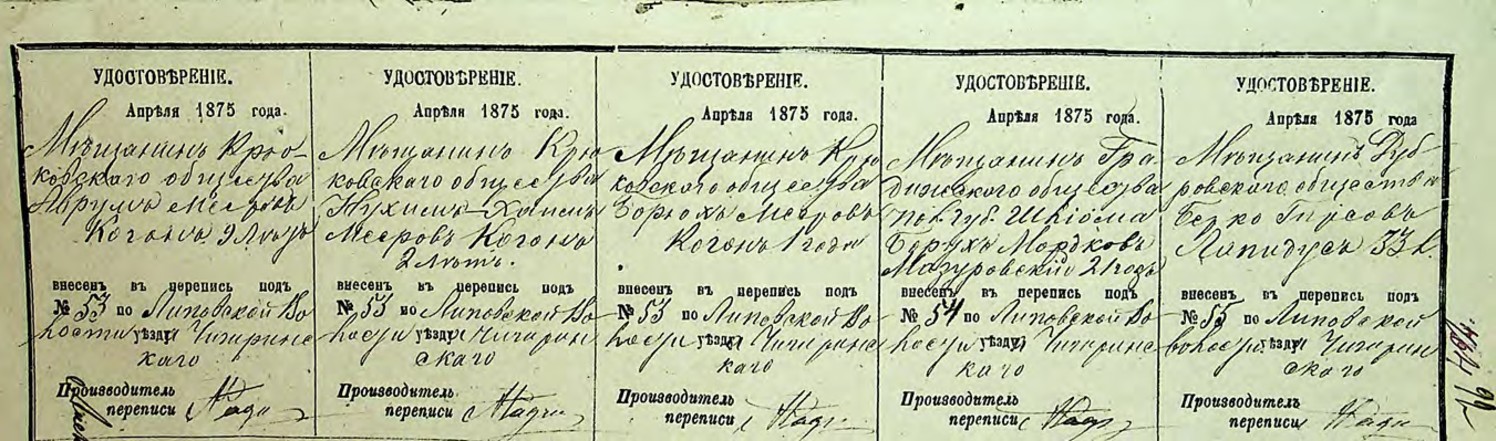 УДОСТОВѢРЕНІЕ.
Апрѣля 1875 года.
Мѣщанинъ Крю-
ковскаго общества
Мееровъ
Коганъ 9 лѣтъ
внесенъ въ перепись подъ
№ 53 по Липовской Во
лости уѣзда Чигиринс
каго
Производитель
переписи
УДОСТОВѢРЕНІЕ.
Апрѣля 1875 года.
Мѣщанинъ Крю
ковскаго общества
Нухимъ-Хаимъ
Мееровъ Коганъ
2 лѣтъ.
внесенъ въ перепись подъ
№ 53 по Липовской Во
лости уѣзда Чигирин
скаго
Производитель
переписи
УДОСТОВѢРЕНІЕ.
Апрѣля 1875 года.
Мѣщанинъ Крю
ковскаго общества
Борюхъ Мееровъ
Коганъ 1 года
внесенъ въ перепись подъ
№ 53 по Липовской Во
лости уѣзда Чигиринс
каго
Производитель
переписи
УДОСТОВѢРЕНІЕ.
Апрѣля 1875 года.
Мѣщанинъ Гра
дижскаго общества
Пол. губ. Шліома
Борухъ Мордковъ
Мазуровскій 21 годъ
внесенъ въ перепись подъ
№ 54 по Липовской Во
лости уѣзда Чигиринс
каго
Производитель
переписи
УДОСТОВѢРЕНІЕ.
Апрѣля 1875 года
Мѣщанинъ Дуб
ровскаго общества
Берко Гирсовъ
Лапидусъ 33 л.
внесенъ въ перепись подъ
№ 55 по Липовской
волости уѣзда Чигирин
скаго
Производитель
переписи